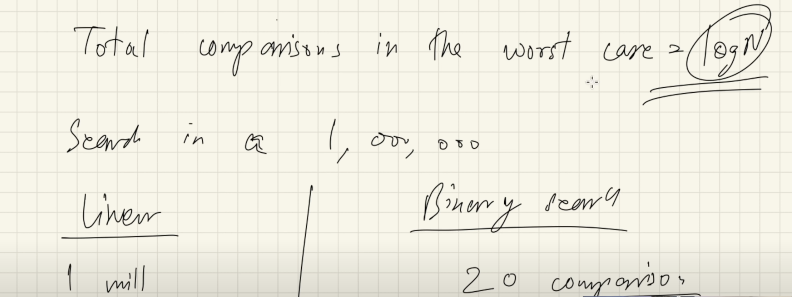 Total comparisons in the worst case = log N
Search in a 1,000,000
Linear
Binary search
1 mill
20 comparisons